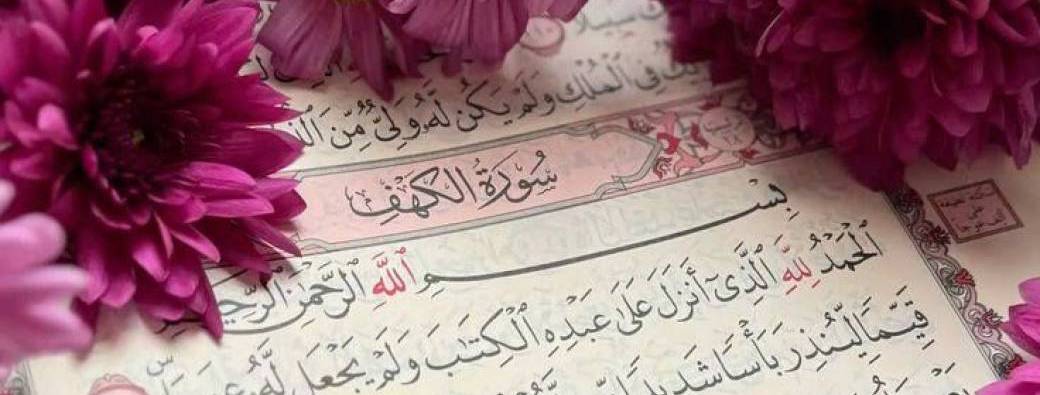 فِي الْمُلْكِ وَلَمْ يَكُن لَّهُ وَلِيٌّ مِّنَ
سُورَةُ الكَهْفِ
بِسْمِ اللَّهِ الرَّحْمَٰنِ الرَّحِيمِ
الْحَمْدُ لِلَّهِ الَّذِي أَنزَلَ عَلَىٰ عَبْدِهِ الْكِتَٰبَ وَلَمْ يَجْعَل لَّهُ
قَيِّمًا لِّيُنذِرَ بَأْسًا شَدِيدًا